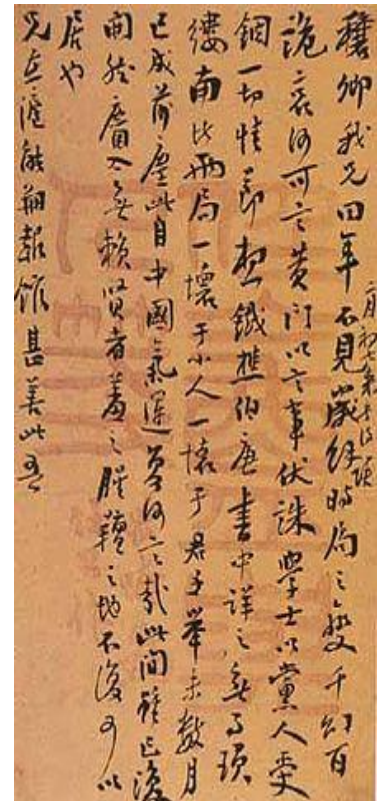 穰卿我兄四年不見歲經時局之變千幻百
二月初七
詭哀何可言黃門以言事伏誅學士以黨人受
錮一切情節想鐵樵伯唐書中詳之無事瑣
縷南北兩局一壞于小人一壞于君子舉未數月
已成前塵此自中國氣運夫何言哉此間雖已復
開然麕入無賴賢者羞之腥羶之地不復可以
居也
兄在滬能創報館甚善此吾